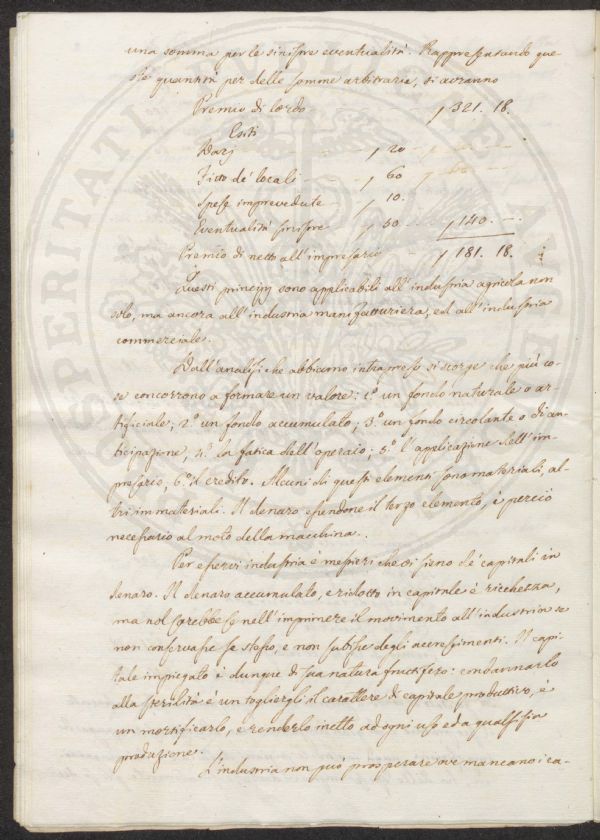 una somma per le sinistre eventualità. Rappresentando que
ste quantità per delle somme arbitrarie, si avranno
Premio di lordo - - - - ƒ 321. 18.
Esiti
Dazj - - - ƒ 20
Fitto de' locali - - ƒ 60
Spese imprevedute - ƒ 10.
Eventualità sinistre ƒ 50 - - ƒ 140. —
Premio di netto all'impresario - - ƒ 181. 18.
Questi principj sono applicabili all'industria agricola non
solo, ma ancora all'industria manifatturiera, ed all'industria
commerciale.
Dall'analisi che abbiamo intrapresa si scorge che più co-
se concorrono a formare un valore: 1.º un fondo naturale o ar-
tificiale; 2.º un fondo accumulato; 3.º un fondo circolante o di an-
ticipazione, 4.º la fatica dell'operaio; 5.º l'applicazione dell'im-
presario, 6.º il credito. Alcuni di questi elementi sono materiali, al-
tri immateriali. Il denaro essendone il terzo elemento, è perciò
necessario al moto della macchina.
Per esservi industria è mestieri che vi sieno de' capitali in
denaro. Il denaro accumulato, e ridotto in capitale è ricchezza,
ma nol sarebbe se nell'imprimere il movimento all'industria se
non conservasse se stesso, e non subisse degli accrescimenti. Il capi-
tale impiegato è dunque di sua natura fruttifero: condannarlo
alla sterilità è un togliergli il carattere di capitale produttivo, è
un mortificarlo, e renderlo inetto ad ogni uso ed a qualsisia
produzione.
L'industria non può prosperare ove mancano i ca-
PROSPERITATI PUBLICAE AUGENDAE